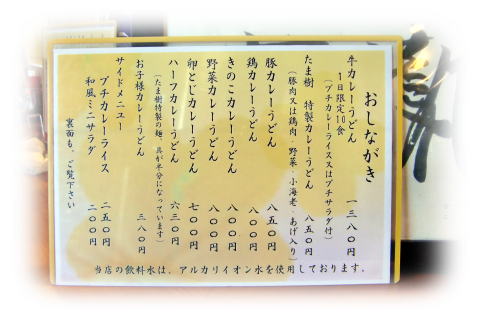 おしながき
牛カレーうどん 一三八〇円
1日限定10食
(プチカレーライス又はプチサラダ付)
たま樹 特製カレーうどん 八五〇円
(豚肉又は鶏肉・野菜・小海老・あげ入り)
豚カレーうどん 八五〇円
鶏カレーうどん 八〇〇円
きのこカレーうどん 八〇〇円
野菜カレーうどん 八〇〇円
卵とじカレーうどん 七〇〇円
ハーフカレーうどん 六三〇円
(たま樹特製の麺、具が半分になっています)
お子様カレーうどん 三八〇円
サイドメニュー
プチカレーライス 二五〇円
和風ミニサラダ 二〇〇円
裏面も、ご覧下さい
当店の飲料水は、アルカリイオン水を使用しております。